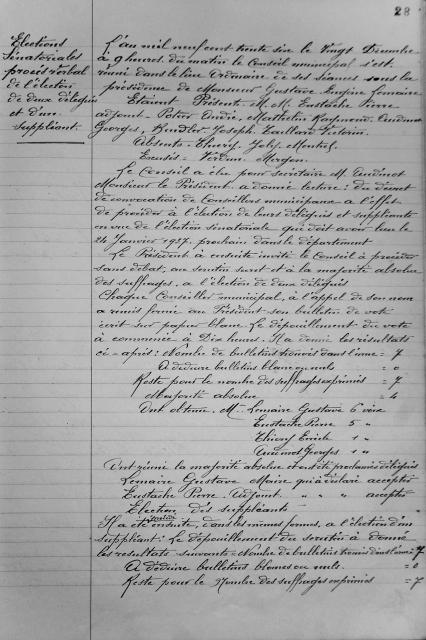 28
Elections
Sénatoriales
procès verbal
de l'élection
de deux délégués
et d'un
suppléant.
L'an mil neuf cent trente six le Vingt Décembre
à 9 heures du matin le Conseil municipal s'est
réuni dans le lieu ordinaire de ses séances sous la
présidence de Monsieur Gustave Lemaire
Etaient Présents. M.M. Eustache Pierre
adjoint. André
Georges, Joseph.
Absents.
Excusés
Le Conseil a élu pour secrétaire M.
Monsieur le Président a donné lecture: du décret
de convocation de Conseillers municipaux a l'effet
de procéder à l'élection de leurs délégués et suppléants
en vue de l'élection sénatoriale qui doit avoir lieu le
24 Janvier 1937. prochain dans le département
Le Président a ensuite invité le Conseil à procéder
sans débat, au scrutin secret et à la majorité absolue
des suffrages, a l'élection de deux délégués
Chaque Conseiller municipal, à l'appel de son nom
a remis fermé au Président son bulletin de vote
écrit sur papier blanc. Le dépouillement du vote
à commencé à Dix heures. Il a donné les résultats
ci-après: Nombre de bulletins trouvés dans l'urne = 7
A déduire bulletins blancs ou nuls = 0
Reste pour le nombre des suffrages exprimés = 7
Majorité absolue = 4
Ont obtenu. M. Lemaire Gustave 6 voix
Eustache Pierre 5 "
Thierry Emile 1 "
Georges 1 "
Ont réuni la majorité absolue et ont été proclamés délégués
Lemaire Gustave Maire qui a déclaré accepter
Eustache Pierre. Adjoint. " " " accepter
Election des suppléants
Il a été procédé ensuite, dans les mêmes formes, a l'élection d'un
suppléant: Le dépouillement du scrutin à donné
les résultats suivants = Nombre de bulletins trouvés dans l'urne = 7
A déduire bulletins blancs ou nuls. = 0
Reste pour le Nombre des suffrages exprimés = 7